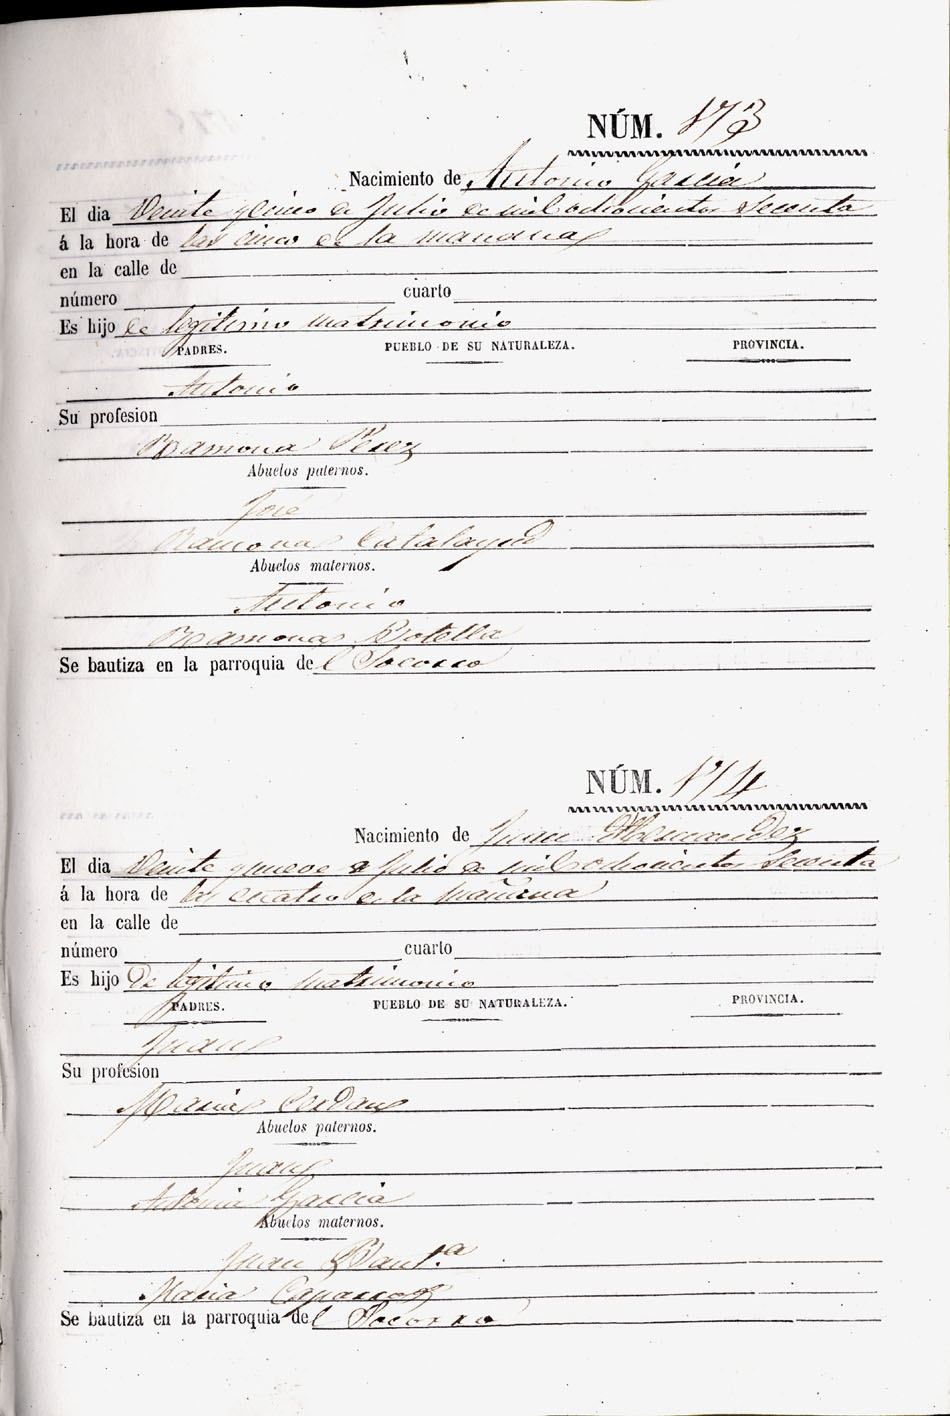 NÚM. 173
Nacimiento de Antonio Garcia
El dia Veinte y cinco de Julio de mil ochocientos Secenta
á la hora de las cinco de la manana
en la calle de
número cuarto
Es hijo de legitimo matrimonio
PADRES. PUEBLO DE SU NATURALEZA. PROVINCIA.
Antonio
Su profesion
Ramona Perez
Abuelos paternos.
José
Ramona Calatayud
Abuelos maternos.
Antonio
Ramona Botella
Se bautiza en la parroquia del Socorro
NÚM. 174
Nacimiento de Juan Hernandez
El dia Veinte y nueve d Julio de mil ochocientos Secenta
á la hora de las cuatro de la mañana
en la calle de
número cuarto
Es hijo De legitimo matrimonio
PADRES. PUEBLO DE SU NATURALEZA. PROVINCIA.
Juan
Su profesion
Maria Cerdan
Abuelos paternos.
Juan
Antonia Garcia
Abuelos maternos.
Juan Baut.a
Maria Caparros
Se bautiza en la parroquia del Socorro